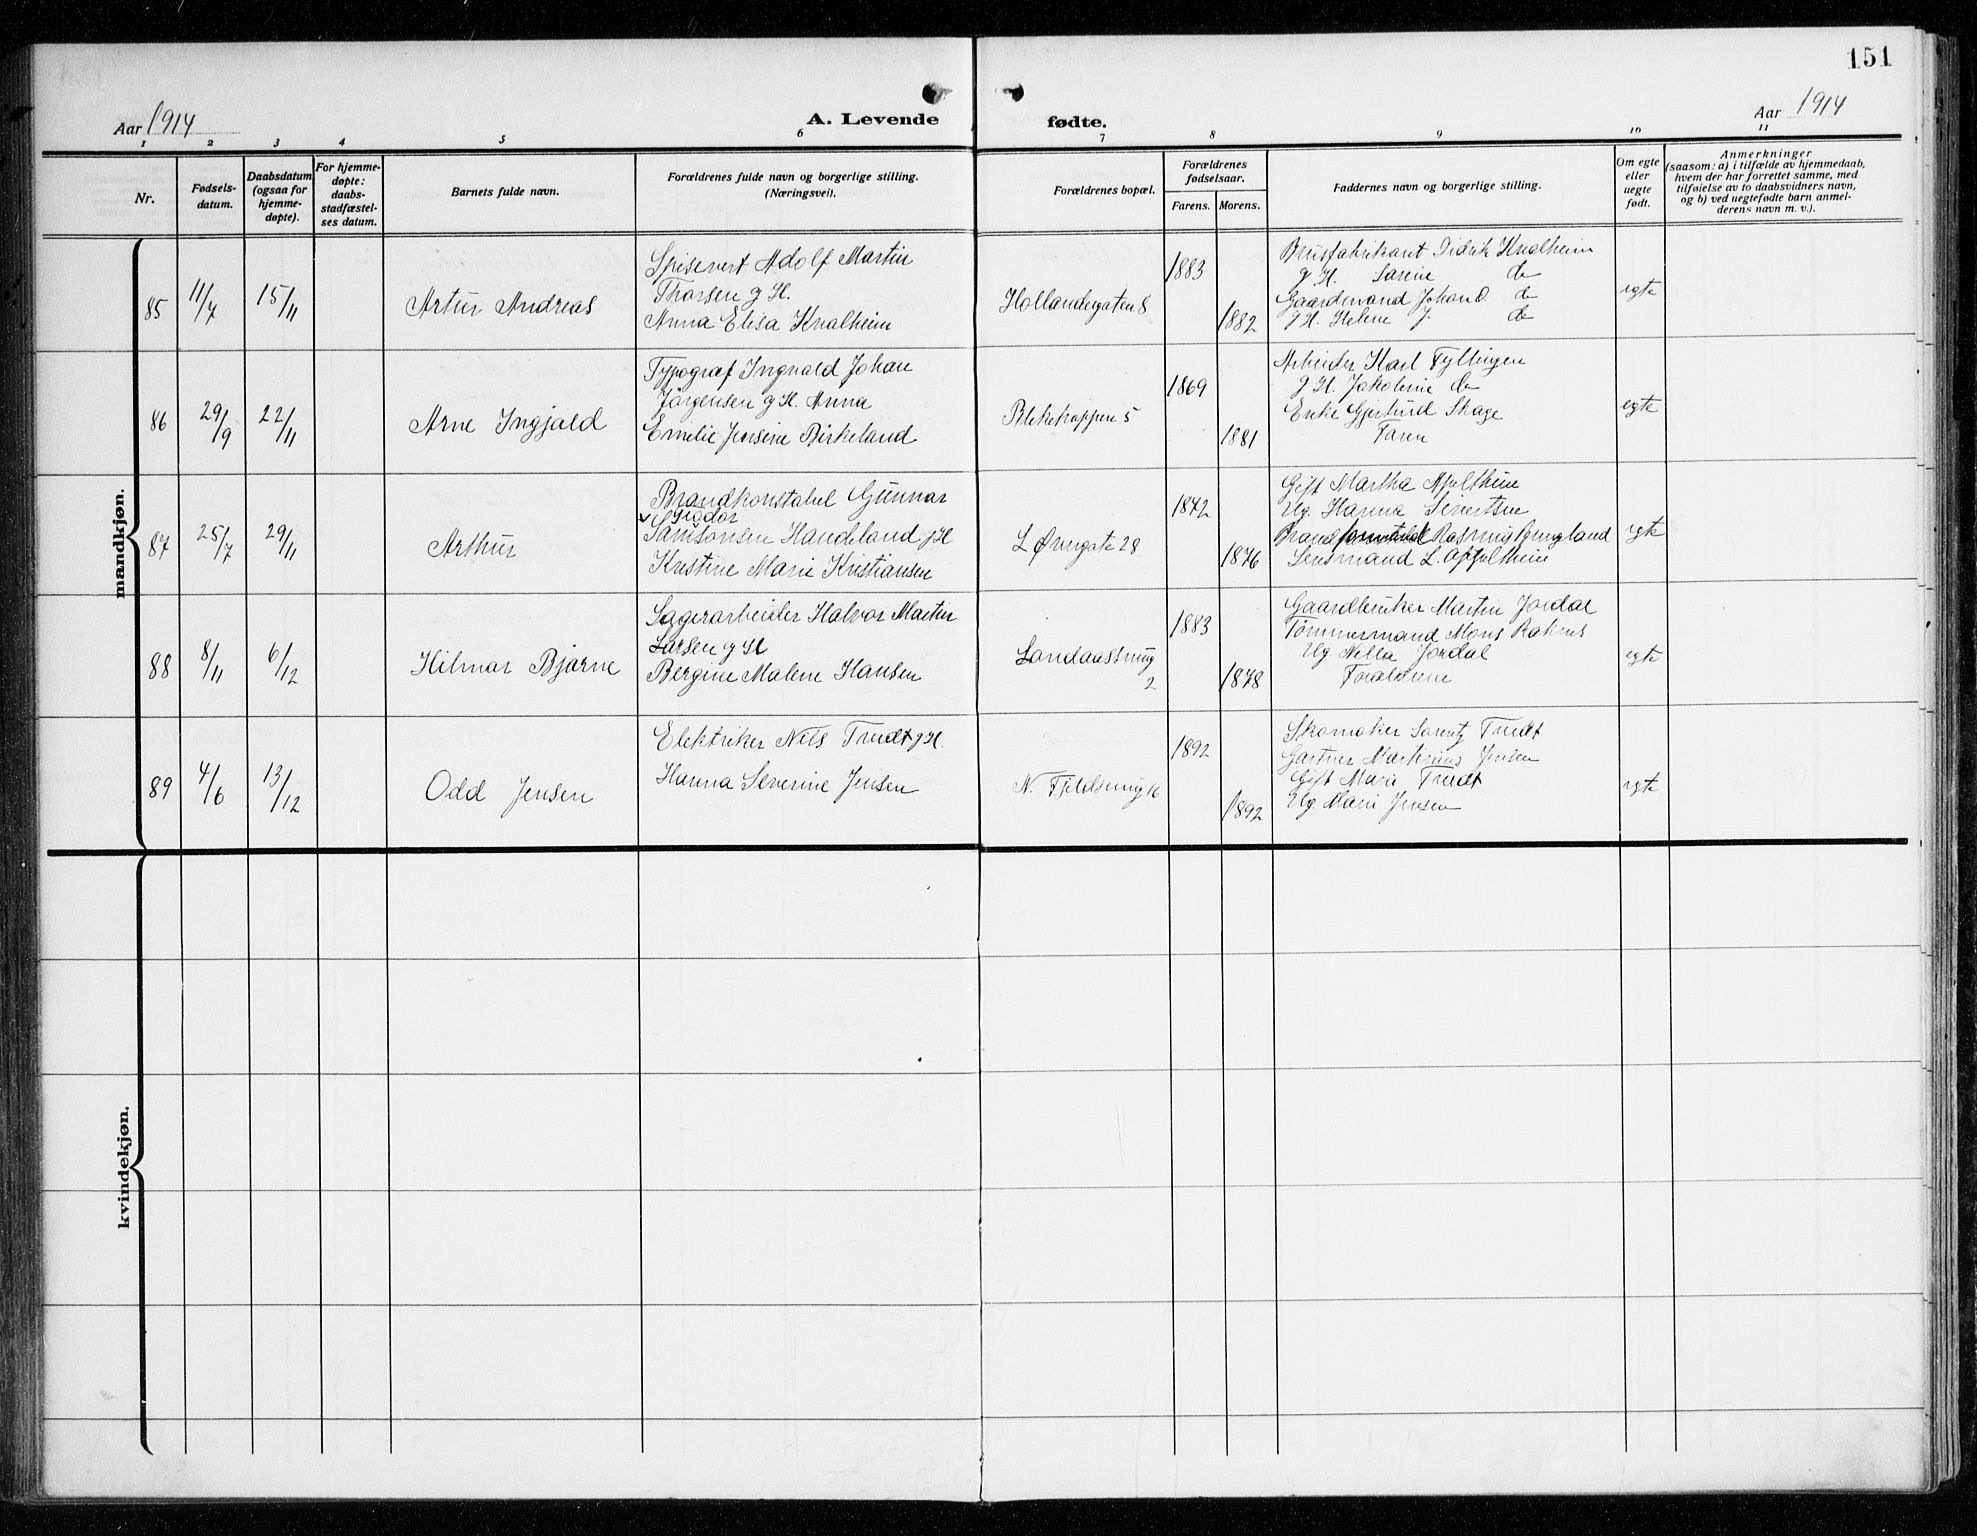 151
Aar 1914
A. Levende
fødte.
Aar 1914
1 2 3 4 5 6 7 8 9 10 11
Nr.
Fødsels-
datum.
Daabsdatum
(ogsaa for
hjemme-
døpte).
For hjemme-
døpte:
daabs-
stadfæstel-
ses datum.
Barnets fulde navn.
Forældrenes fulde navn og borgerlige stilling.
(Næringsvei).
Forældrenes bopæl.
Forældrenes
fødselsaar.
Farens. Morens.
Faddernes navn og borgerlige stilling.
Om egte
eller
uegte
født.
Anmerkninger
(saasom: a) i tilfælde av hjemmedaab,
hvem der har forrettet samme, med
tilføielse av to daabsvidners navn,
og b) ved uegtefødte barn anmel-
derens navn m. v.).
mandkjøn.
85
11/7
15/11
Artur Andreas
Spisevert Adolf Martin
Thorsen g H.
Anna Elisa Kvalheim
Hollendergaten 8
1883
1882
Brusfabrikant Didrik Kvalheim
g H. Sarine do
Gaardmand Johan O. do
g H. Helene J. do
egte
86
29/9
22/11
Arne Ingjald
Typograf Ingvald Johan
Jørgensen g H. Anna
Emilie Jensine Birkeland
Blekekoppen 5
1869
1881
Arbeider Karl Tyllingen
g H. Jakobine do
Enke Gjertrud Skage
Faren
egte
87
25/7
29/11
Arthur
Brandkonstabel Gunnar
Teodor
Samsonsen Handeland g H
Kristine Marie Kristiansen
L Øvregate 28
1872
1876
Gift Martha Apeltheim
Ug. Hanna Sivertsen
Rasmus Bergland
Lensmand L. Apeltheim
egte
88
8/11
6/12
Hilmar Bjarne
Lagerarbeider Halvor Martin
Larsen g H
Bergine Malene Hansen
Landaassving
2
1883
1878
Gaardbruker Martin Jordal
Tømmermand Mons
Ug Nella Jordal
Forældrene
egte
89
4/6
13/12
Odd Jensen
Elektriker Nils Trudt g H.
Hanna Severine Jensen
N. Fjeldsmug 16
1892
1892
Skomaker Trudt
Gartner Martinus Jensen
Gift Marie Trudt
Ug. Marie Jensen
egte
kvindekjøn.